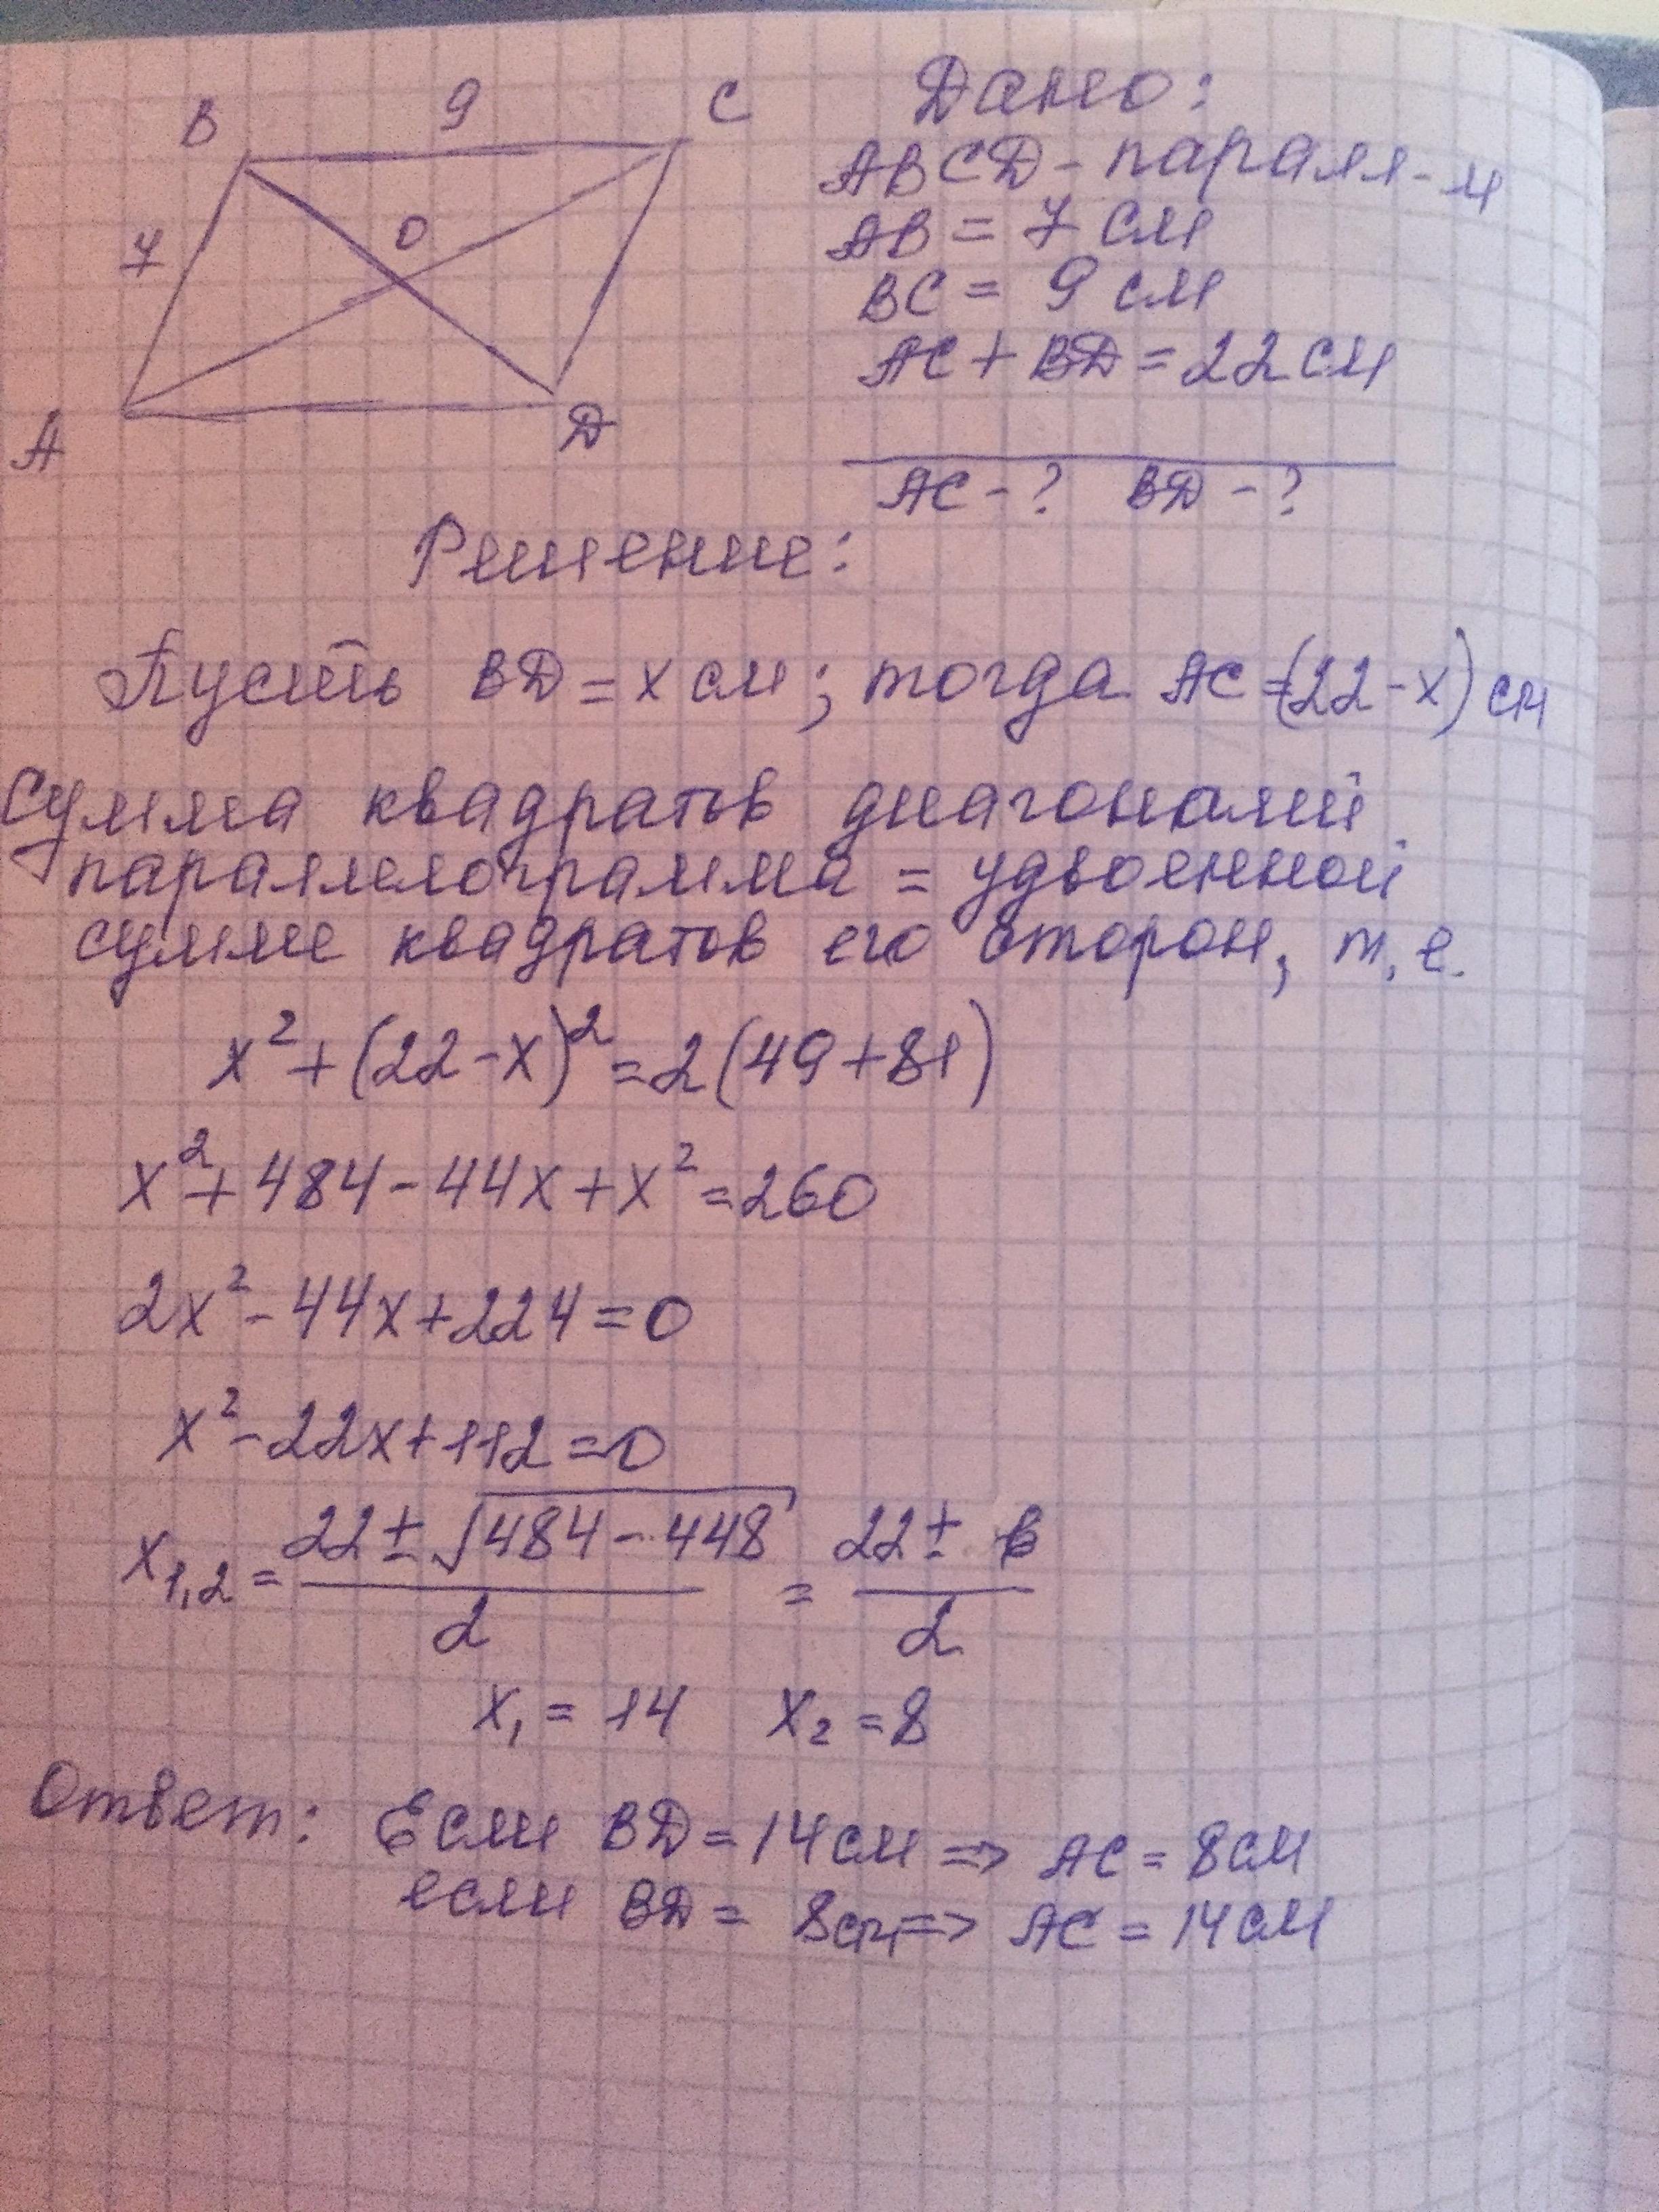 B 9 C
7 O
A D
Дано:
ABCD - паралл-м
AB = 7 см
BC = 9 см
AC + BD = 22 см
AC - ? BD - ?
Решение:
Пусть BD = x см; тогда AC = (22 - x) см
Сумма квадратов диагоналей
параллелограмма = удвоенной
сумме квадратов его сторон, т.е.
x² + (22 - x)² = 2(49 + 81)
x² + 484 - 44x + x² = 260
2x² - 44x + 224 = 0
x² - 22x + 112 = 0
x₁,₂ = (22 ± √(484 - 448))/2 = (22 ± 6)/2
x₁ = 14 x₂ = 8
Ответ: Если BD = 14 см => AC = 8 см
если BD = 8 см => AC = 14 см